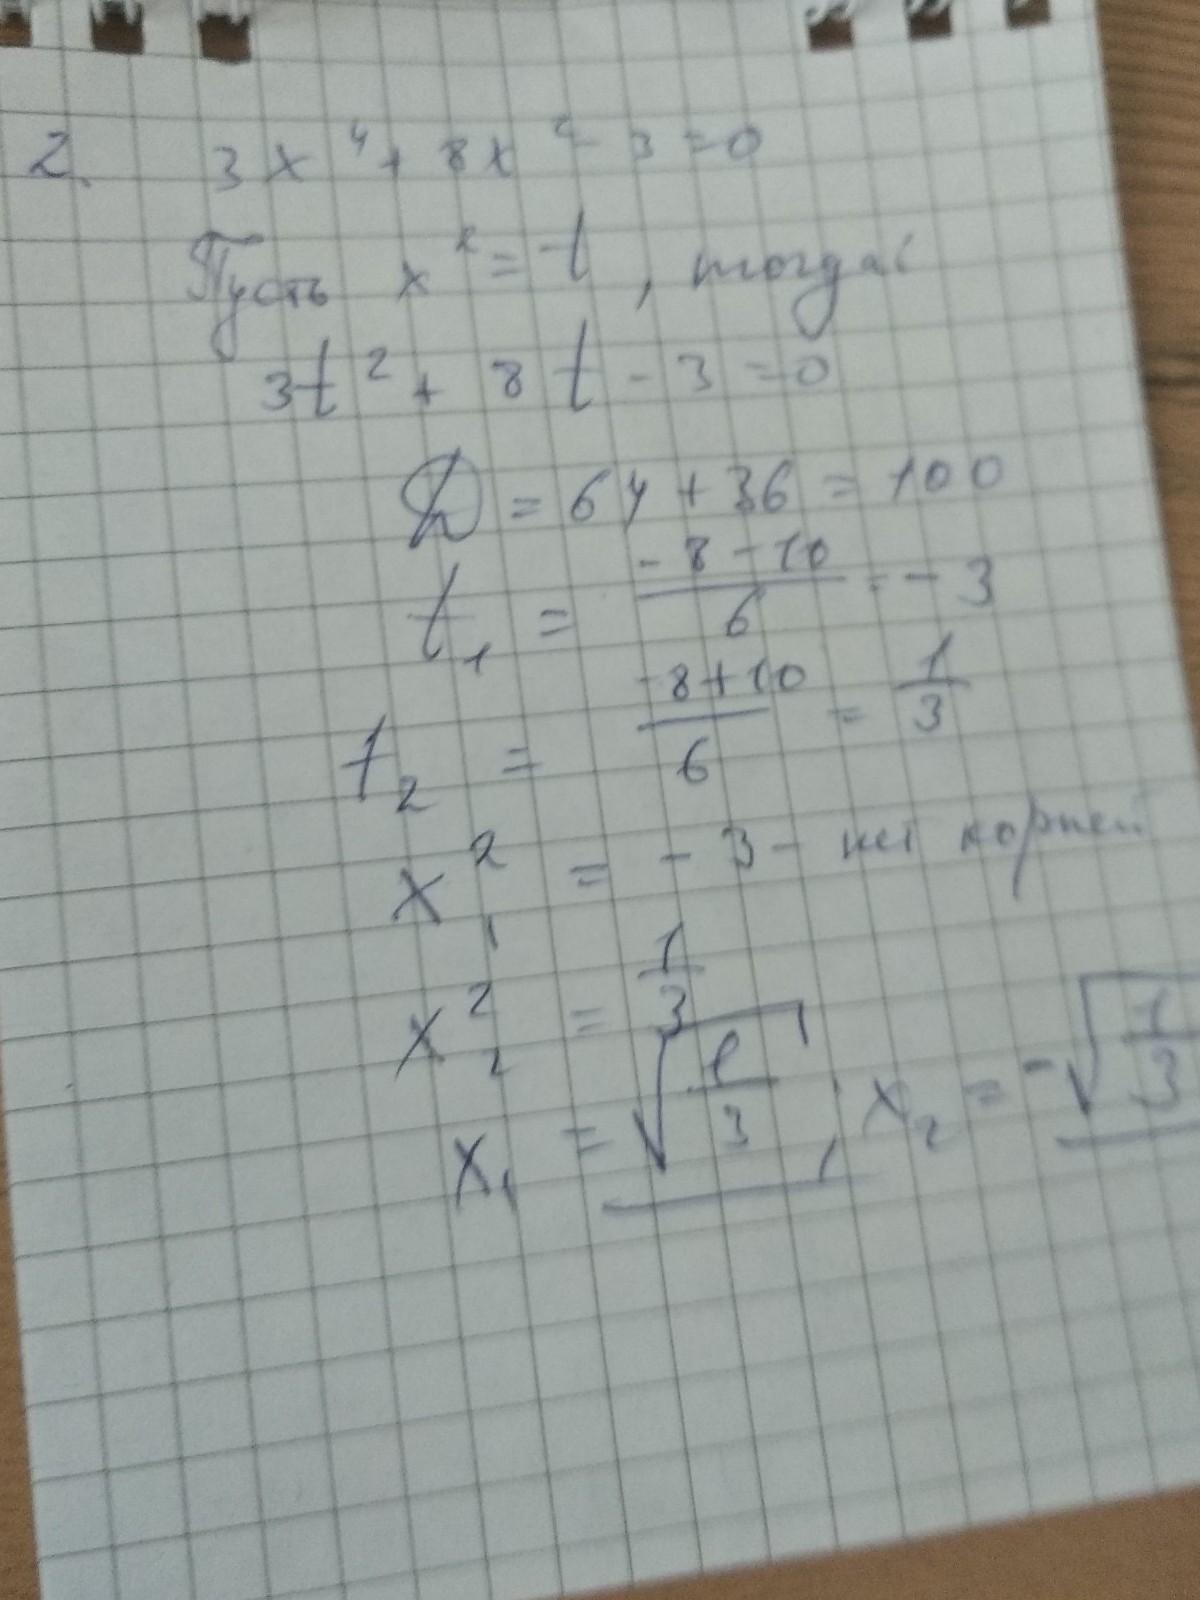 2. 3x⁴ + 8x² - 3 = 0
Пусть x² = t, тогда:
3t² + 8t - 3 = 0
D = 64 + 36 = 100
t₁ = (-8-10)/6 = -3
t₂ = (-8+10)/6 = 1/3
x₁² = -3 - нет корней
x₂² = 1/3
x₁ = √(1/3), x₂ = -√(1/3)